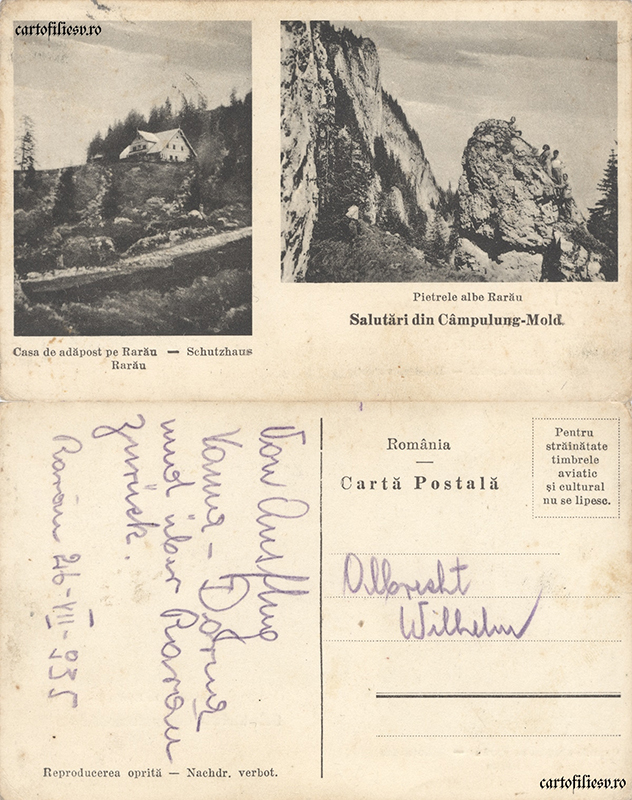 cartofiliesv.ro
Casa de adăpost pe Rarău — Schutzhaus
Rarău
Pietrele albe Rarău
Salutări din Câmpulung-Mold.
Von Ausflug
Vama - Dorna
und über Rarău
zurück.
Rarău 26-VII-935
România
Cartă Postală
Pentru
străinătate
timbrele
aviatic
și cultural
nu se lipesc.
Albrecht
Wilhelm
Reproducerea oprită — Nachdr. verbot.
cartofiliesv.ro